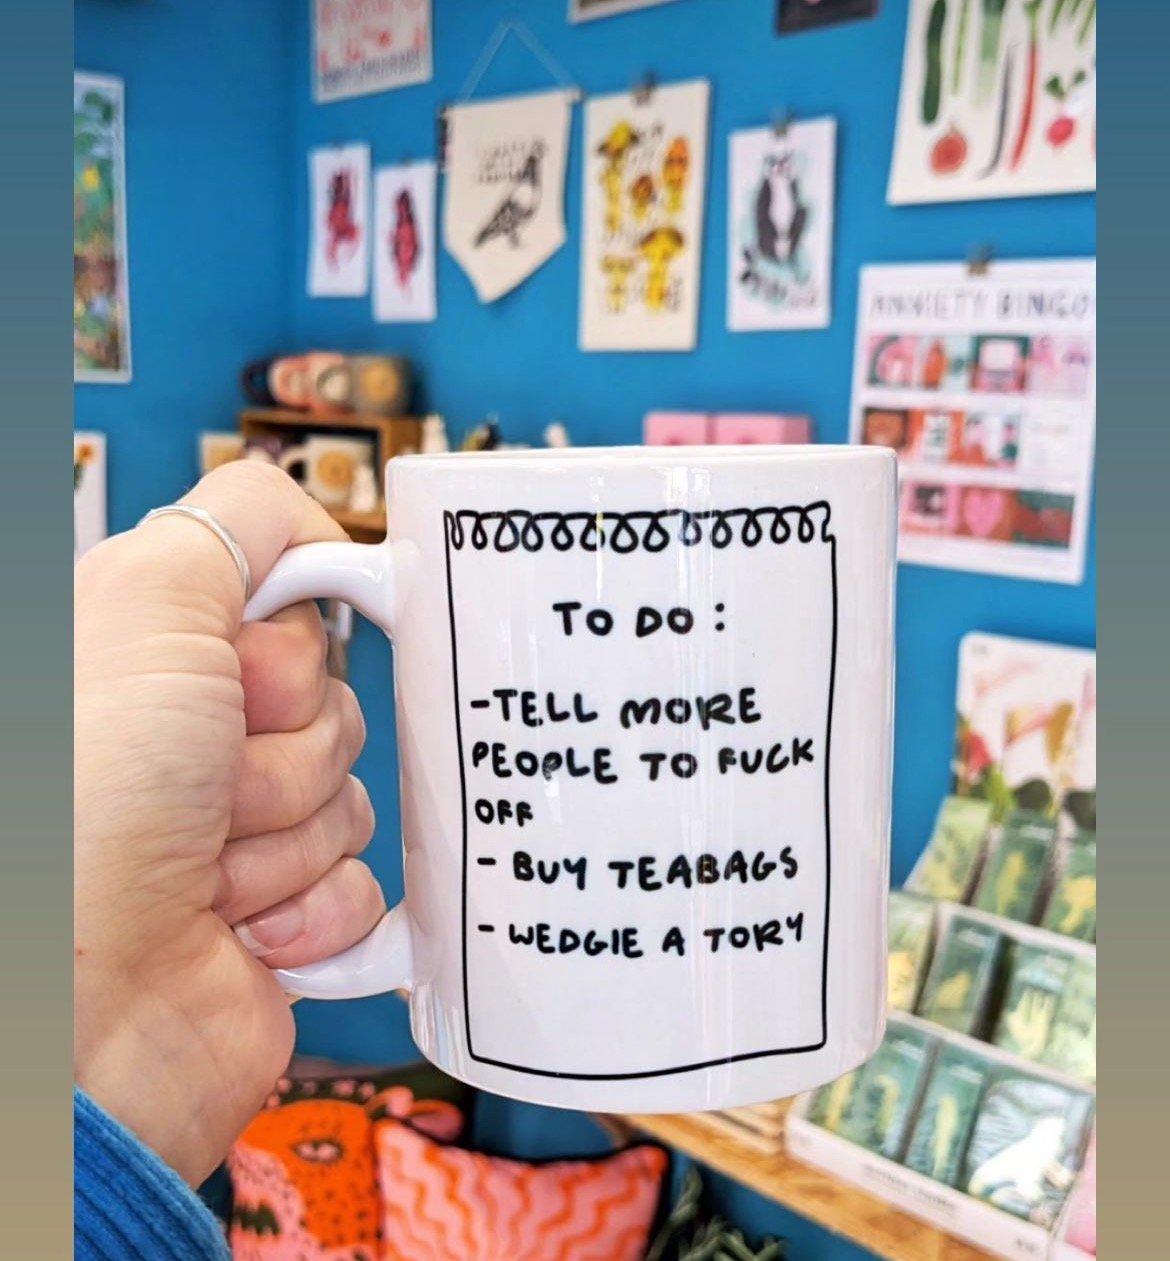 ANXIETY BINGO
TO DO :
-TELL MORE
PEOPLE TO FUCK
OFF
- BUY TEABAGS
- WEDGIE A TORY